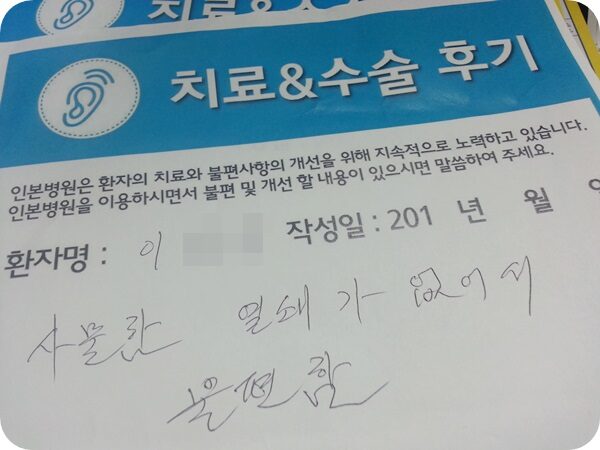 치료&수술 후기
인본병원은 환자의 치료와 불편사항의 개선을 위해 지속적으로 노력하고 있습니다.
인본병원을 이용하시면서 불편 및 개선 할 내용이 있으시면 말씀하여 주세요.
환자명 : 이 작성일 : 201 년 월
사물함 열쇄가 없어서
불편함